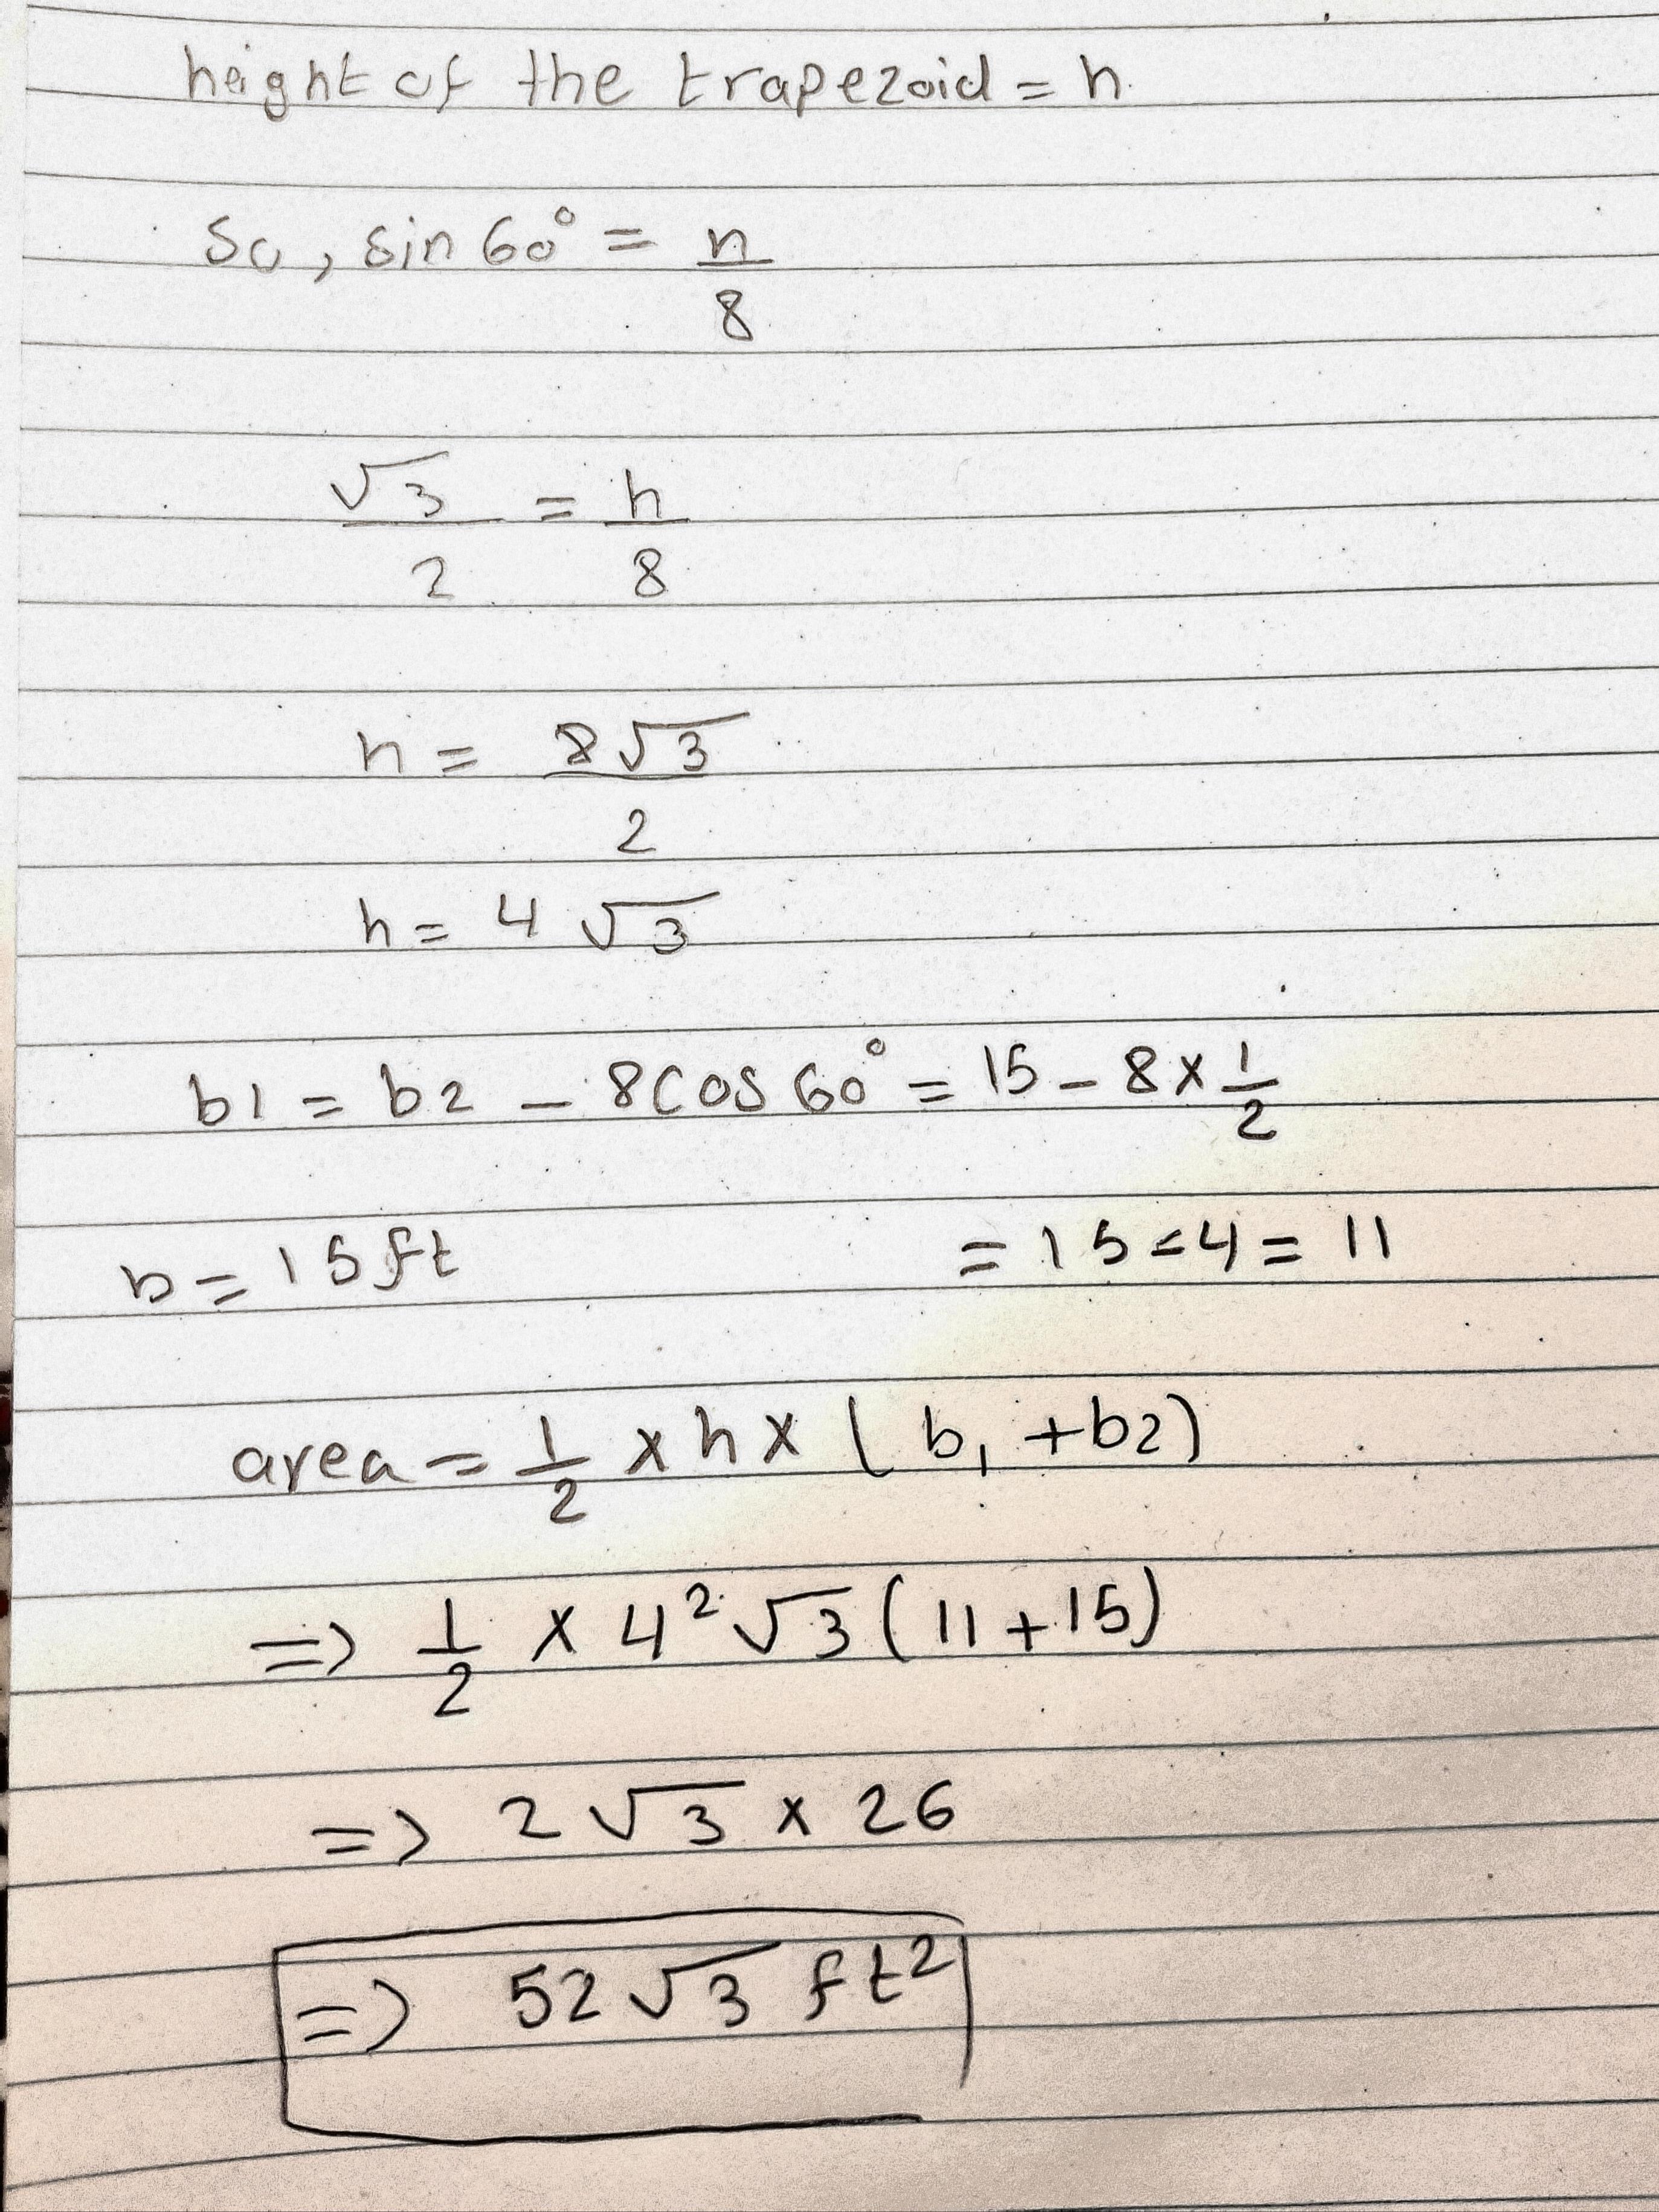 height of the trapezoid = h
So, sin 60° = h/8
√3/2 = h/8
h = 8√3/2
h = 4√3
b1 = b2 - 8cos 60° = 15 - 8 × 1/2
b = 15 ft = 15 - 4 = 11
area = 1/2 × h × (b1 + b2)
=> 1/2 × 4² √3 (11 + 15)
=> 2√3 × 26
=> 52√3 ft²